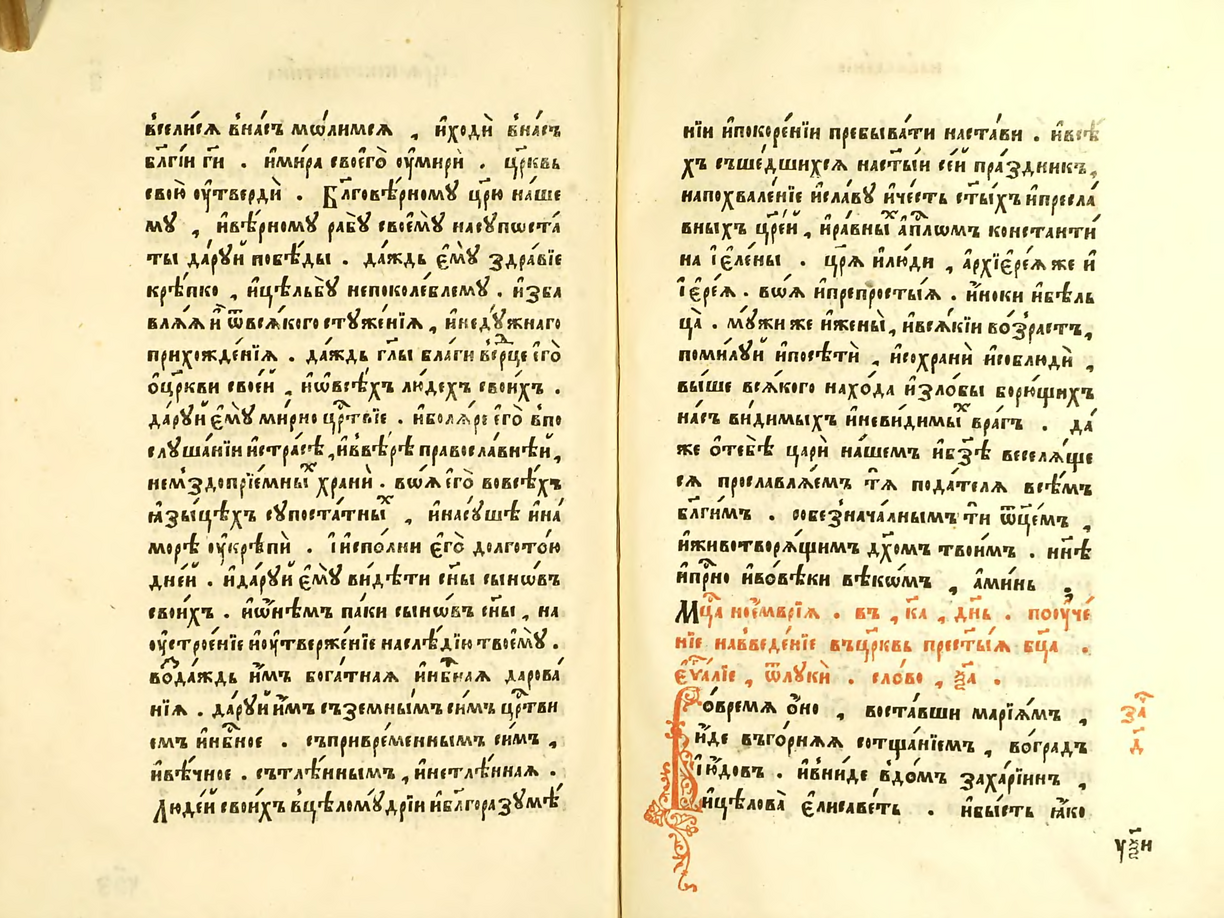 вселисѧ в̾насъ мѡлимсѧ , и҆ходѝ в̾насъ
бл҃гі́и гн҃ . и҆мира своего̀ ᲂу҆мирѝ . цр҃квь
свою̀ ᲂу҆твердѝ . Бл҃говѣ́рномꙋ цр҃ю на́ше
мꙋ , и҆вѣ́рномꙋ рабꙋ̀ своемꙋ̀ насꙋпѡста́
ты да́рꙋй побѣ́ды . да́ждь є҆мꙋ̀ здра́вїе
крѣ́пко , и҆цѣльбꙋ̀ непоколе́блемꙋ . и҆зба
влѧ́ѧ и҆̀ ѿвсѧ́кого стꙋже́нїѧ , и҆недꙋ́жнаго
прихожде́нїѧ . да́ждь гл҃ы бла́ги в̾се́рⷣце є҆го̀
ѻ҆цр҃кви свое́й , и҆ѡ҆всѣ́хъ лю́дехъ свои́хъ .
да́рꙋй є҆мꙋ̀ ми́рно црⷭ҇твїе . и҆болѧ́ре є҆го̀ в̾по
слꙋша́нїи и҆стра́сѣ , и҆в̾вѣ́рѣ правосла́внѣй ,
немздопрїе́мныⷯ храни̇̀ . воѧ̀ є҆го̀ вовсѣ́хъ
ꙗ҆зы́цѣхъ сꙋпоста́тныⷯ , и҆насꙋ́шѣ и҆на́
мо́рѣ ᲂу҆крѣпѝ . і҆и҆спо́лни є҆го̀ долгото́ю
дне́й . и҆да́рꙋй є҆мꙋ̀ ви́дѣти сн҃ы сынѡ́въ
свои́хъ . и҆ѡ҆не́мъ па́ки сынѡ́въ сн҃ы , на
ᲂу҆строе́нїе и҆ᲂу҆твержде́нїе наслѣ́дїю твоемꙋ̀ .
возⷣа́ждь и҆̀мъ бога́тнаѧ и҆нбⷭ҇наѧ дарова́
нїѧ . да́рꙋй и҆̀мъ съзе́мнымъ си́мъ црⷭ҇тви
емъ и҆нбⷭ҇ное . съпривре́меннымъ си́мъ ,
и҆вѣ́чное . сътлѣ́ннымъ , и҆нетлѣ́ннаѧ .
Люде́й свои́хъ в̾цѣломꙋ́дрїи и҆бл҃горазꙋмѣ́
нїи и҆покоре́нїи пребыва́ти наста́ви . и҆всѣ
хъ съше́дшихсѧ настⷵы́и се́й пра́здникъ ,
напохвале́нїе и҆сла́вꙋ и҆че́сть ст҃ы́хъ и҆пресла́
вныхъ цр҃е́й , и҆ра́вныⷯ а҆пⷭ҇лѡмъ константи́
на і҆є҆ле́ны . цр҃ѧ̀ и҆лю́ди , а҆рхїе҆ре́ѧ же и҆
і҆є҆ре́ѧ . воѧ̀ и҆препросты́ѧ . и҆́ноки и҆бѣль
ца̀ . мꙋ́жи же и҆жены̀ , и҆всѧ́кїи во́зрастъ ,
поми́лꙋй и҆посѣтѝ , и҆сохранѝ и҆соблюдѝ ,
вы́ше всѧ́кого нахо́да и҆зло́бы борю́щихъ
на́съ ви́димыхъ и҆неви́димыⷯ вра́гъ . да́
же ѻ҆тебѣ̀ царѝ на́шемъ и҆бз҃ѣ веселѧ́ще
сѧ прославлѧ́емъ тѧ̀ пода́телѧ всѣ́мъ
бл҃ги́мъ . собезнача́лнымъ ти ѿце́мъ ,
и҆животворѧ́щимъ дх҃омъ твои́мъ . нн҃ѣ
и҆прⷭ҇но и҆во́вѣки вѣкѡ́мъ , а҆ми́нь .
Мцⷭ҇а ное́мврїѧ . въ , к҃а , дн҃ь . поᲂуче́
нїе нав̾веде́нїе въцр҃квь прест҃ы́ѧ бц҃а .
єѵⷢ҇а́лїе , ѿлꙋкѝ . сло́во ,
Вовре́мѧ ѻ҆́но , воста́вши марїѧ́мъ ,
и҆́де въго́рнѧѧ сотща́нїемъ , во́градъ
і҆ю́довъ . и҆вни́де в̾до́мъ заха́рїинъ ,
и҆цѣлова̀ є҆лисаве́ть . и҆бы́сть ꙗ҆́ко
заⷱ҇
д҃